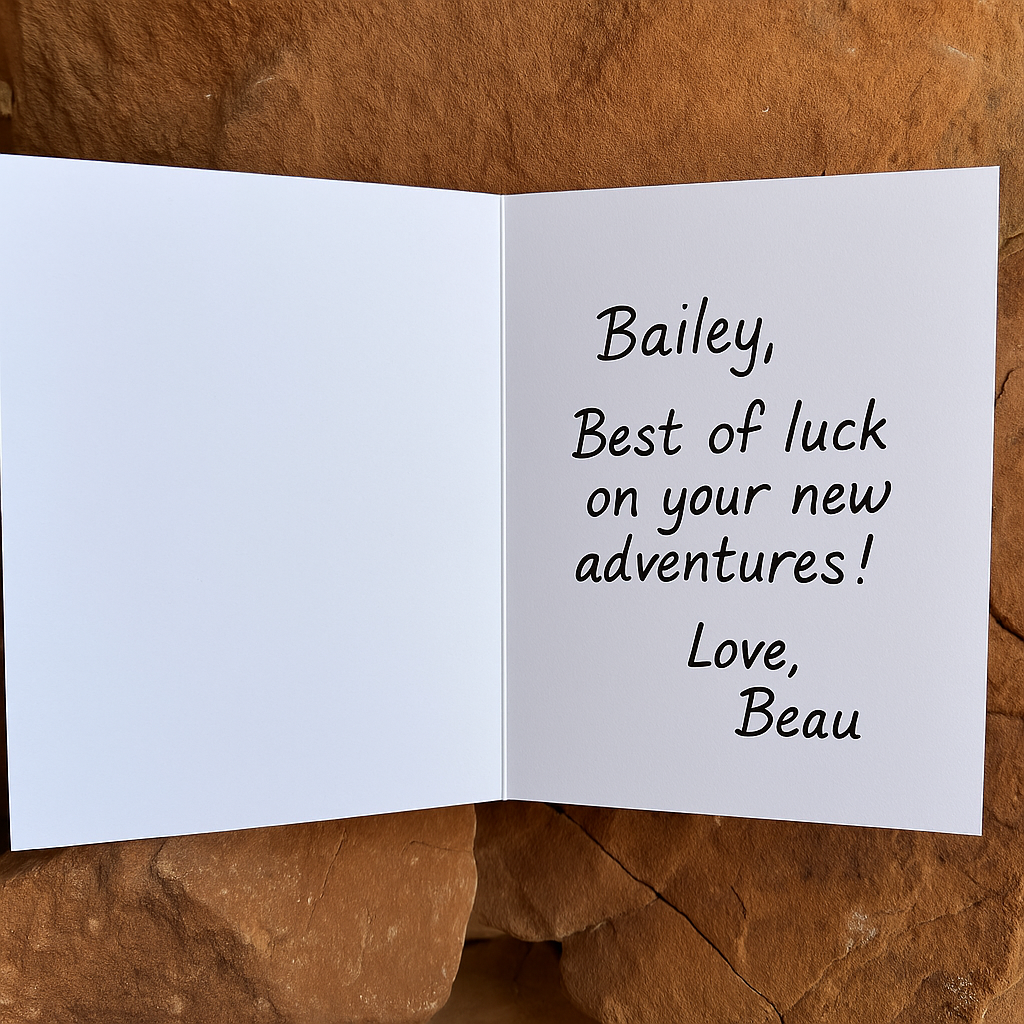 Bailey,
Best of luck
on your new
adventures!
Love,
Beau